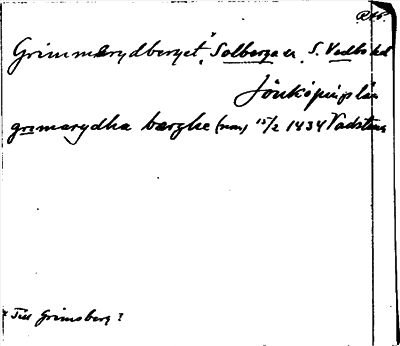 Grimmarydberget, Solberga sn S. Vedbo hd
Jönköpings län
gremarydha bærghe (nm) 15/2 1434 Vadstena
* Till Grimsberg?